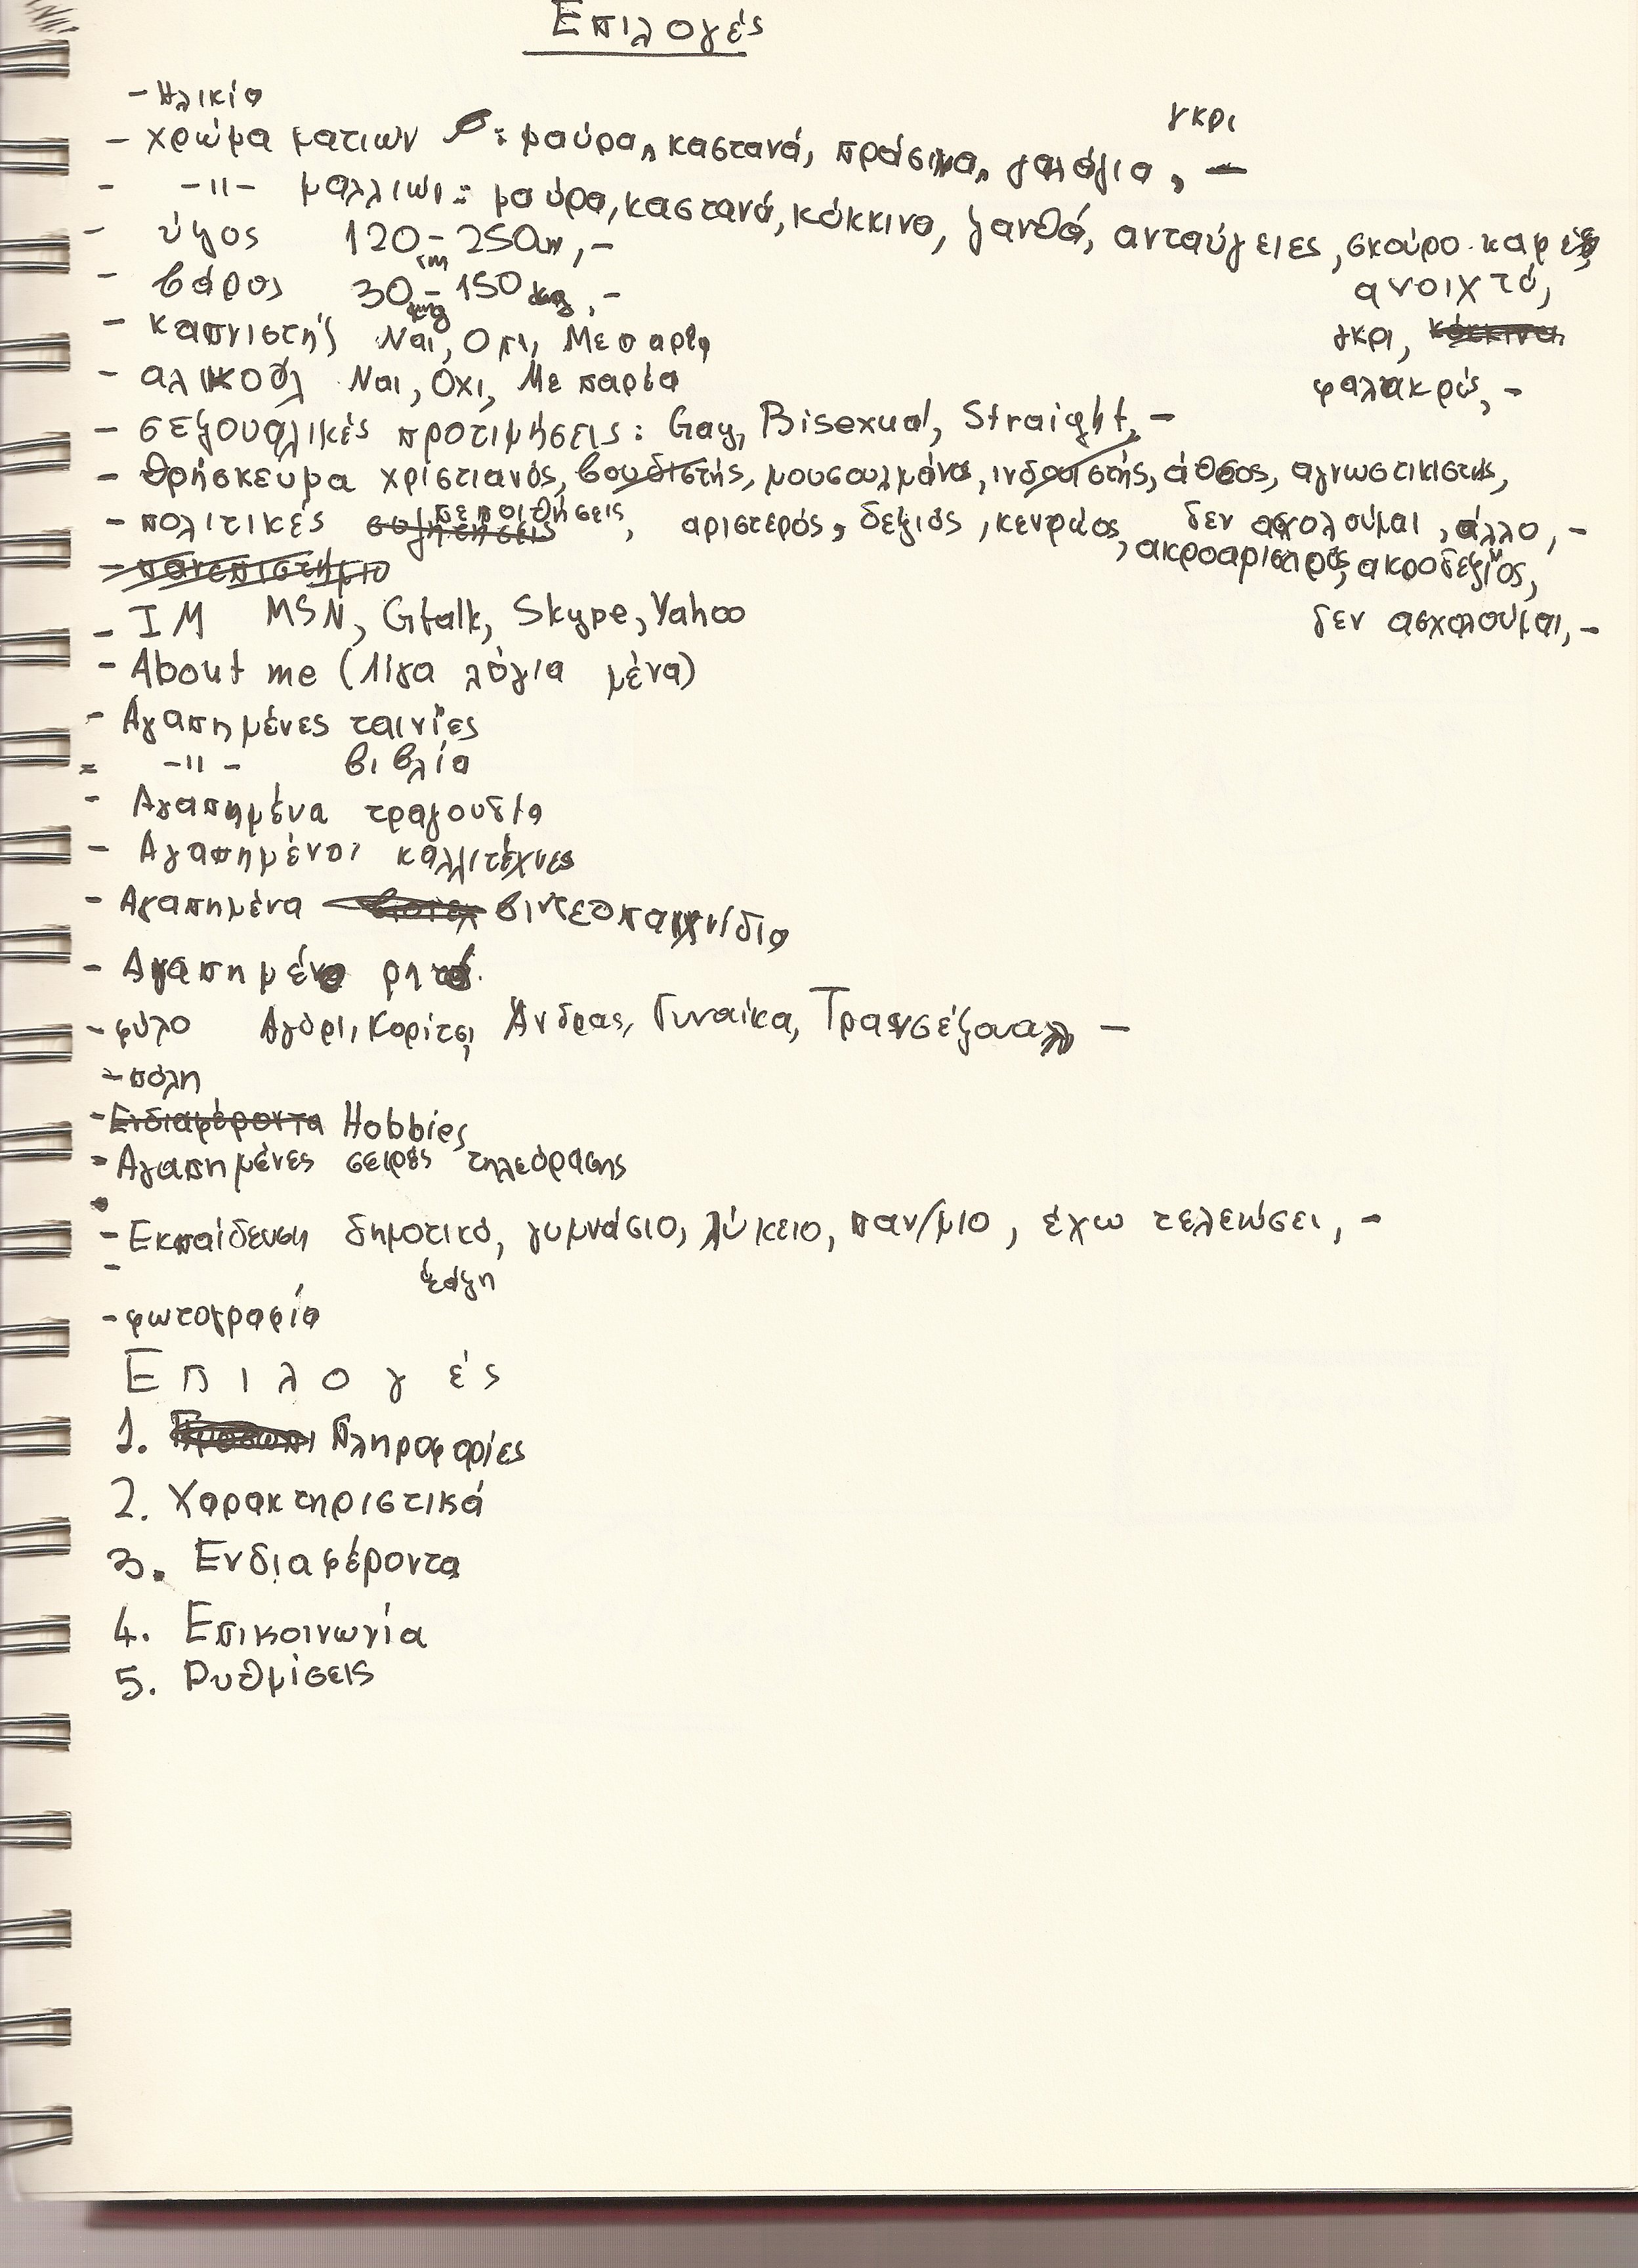 Επιλογές
- Ηλικία
γκρι
- χρώμα ματιών : μαύρα, καστανά, πράσινα, γαλάζια, -
- -||- μαλλιών: μαύρα, καστανά, κόκκινα, ξανθά, ανταύγειες, σκούρο καφέ,
ανοιχτό,
- ύψος 120cm - 250cm, -
- βάρος 30kg - 150kg, -
γκρι, κόκκινα
- καπνιστής Ναι, Όχι, Με παρέα
φαλακρός, -
- αλκοόλ Ναι, Όχι, Με παρέα
- σεξουαλικές προτιμήσεις: Gay, Bisexual, Straight, -
- θρήσκευμα χριστιανός, βουδιστής, μουσουλμάνος, ινδουιστής, άθεος, αγνωστικιστής,
- πολιτικές συζητήσεις πεποιθήσεις, αριστερός, δεξιός, κεντρώος, δεν ασχολούμαι, άλλο, -
, ακροαριστερός, ακροδεξιός,
- πανεπιστήμιο
δεν ασχολούμαι, -
- IM MSN, Gtalk, Skype, Yahoo
- About me (λίγα λόγια μένα)
- Αγαπημένες ταινίες
- -||- βιβλία
- Αγαπημένα τραγούδια
- Αγαπημένοι καλλιτέχνες
- Αγαπημένα βιντεοπαιχνίδια
- Αγαπημένο ρητό.
- φύλο Αγόρι, Κορίτσι, Άνδρας, Γυναίκα, Τρανσέξουαλ -
- πόλη
- Ενδιαφέροντα Hobbies
- Αγαπημένες σειρές τηλεόρασης
- Εκπαίδευση δημοτικό, γυμνάσιο, λύκειο, παν/μιο, έχω τελειώσει, -
-
- φωτογραφία
Επιλογές
1. Πληροφορίες
2. Χαρακτηριστικά
3. Ενδιαφέροντα
4. Επικοινωνία
5. Ρυθμίσεις